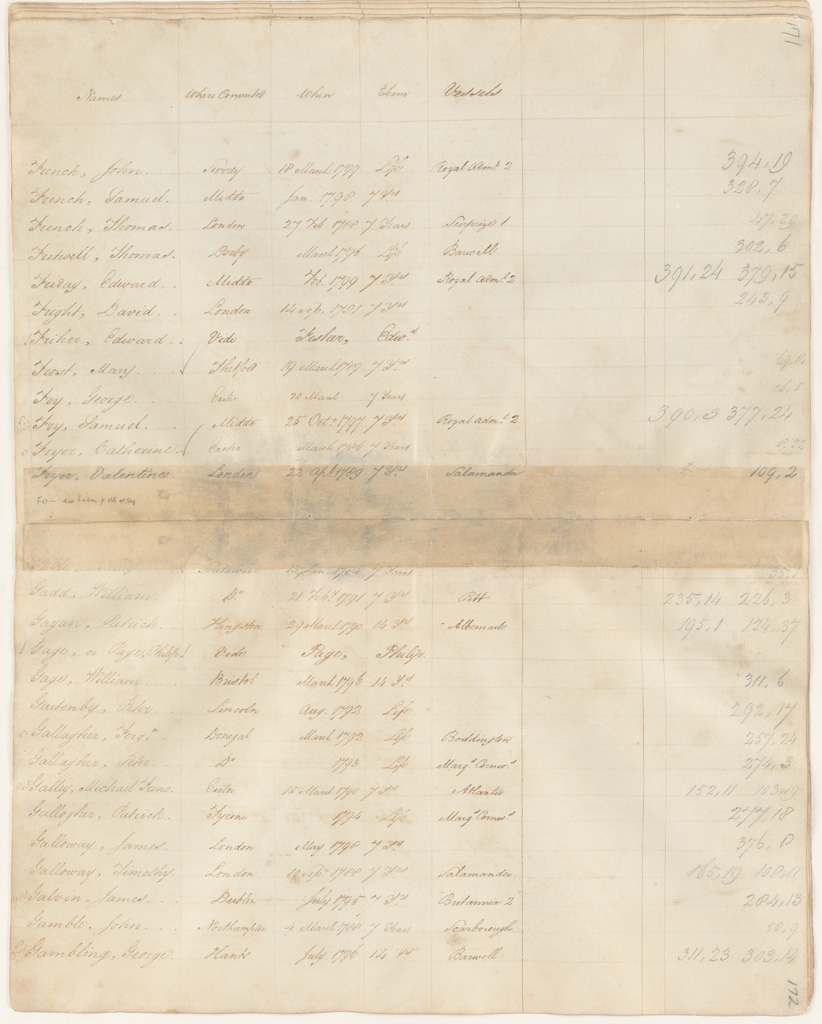 171
Names Where Convicted When Term Vessels
French, John Surrey 18 March 1799 Life Royal Adml. 2 394,19
French, Samuel. Middx Jan. 1798 7 Yrs 328,7
French, Thomas. London 27 Feb. 1788 7 Years Surprize 1
Fretwell, Thomas. Derby March 1796 Life Barwell 302,6
Friday, Edward Middx Feb. 1799 7 Yrs Royal Adml. 2 391,24 379,15
Fright, David. London 7 Yrs 243,9
Frisher, Edward Vide Fisher, Edwd
Frost, Mary Thetford 19 March 7 Yrs
Fry, George Exeter 20 March 7 Years 26,5
Fry, Samuel Middx 25 Octr. 1797 7 Yrs Royal Adml. 2 390,3 377,24
Fryer, Catherine Exeter March 1786 7 Years
Fryer, Valentine London 22 Apl. 1789 7 Yrs Salamander 109,2
7 Years
Gadd, William Do 21 Feby. 1791 7 Yrs Pitt 235,14 226,3
Gagan, Patrick. Kingston 29 March 1790 14 Yrs Albemarle 195,1 124,37
Gage, or Page, Philip Vide Page, Philip
Gage, William Bristol March 1796 14 Yrs 311,6
Gaitenby, Peter Lincoln Aug. 1792 Life 292,17
Gallagher, Donegal March 1792 Life Boddington 257,24
Gallagher, Peter Do 1793 Life Marqs. Cornws. 274,3
Galley, Michael Exeter 15 March 1790 7 Yrs Atlantic 152,11
Gallogher, Patrick. Tyrone 1794 Life Marqs. Cornws. 277,18
Galloway, James. London May 1798 7 Yrs 376,8
Galloway, Timothy London Sepr. 1788 7 Yrs Salamander 165,19 108,11
Galvin, James Dublin July 1795 7 Yrs Britannia 2 284,13
Gamble, John Northampton 4 March 7 Years Scarborough 58,9
Gambling, George Hants July 1796 14 Yrs Barwell 311,23 303,14
172